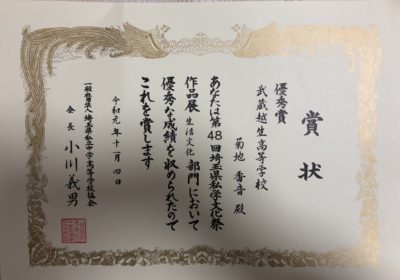 賞状
優秀賞
武蔵越生高等学校
菊地 香音 殿
あなたは第48回埼玉県私学文化祭
作品展 生活文化 部門において
優秀な成績を収められたので
これを賞します
令和元年十一月四日
一般社団法人 埼玉県私立中学高等学校協会
会長 小川義男